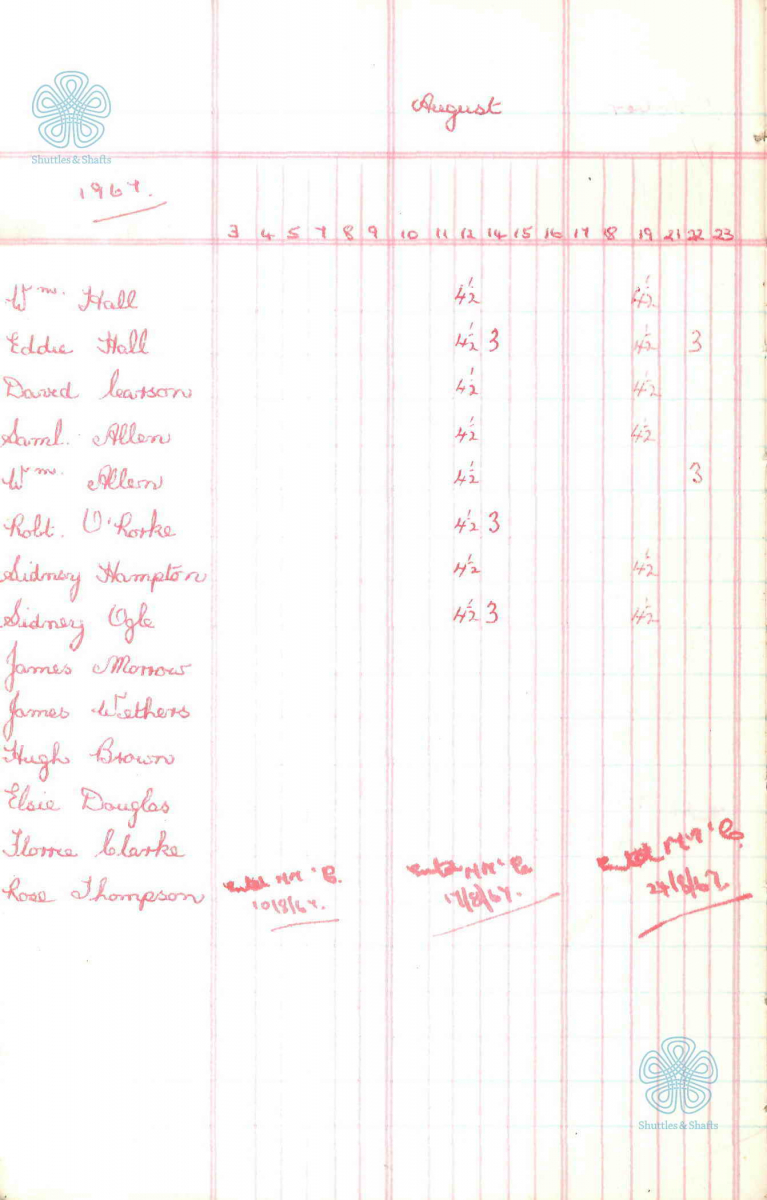 August
Shuttles & Shafts
1967.
3 4 5 7 8 9 10 11 12 14 15 16 17 18 19 21 22 23
Wm. Hall 4½ 4½
Eddie Hall 4½ 3 4½ 3
David Carson 4½ 4½
Saml. Allen 4½ 4½
Wm. Allen 4½ 3
Robt. O'Rorke 4½ 3
Sidney Hampton 4½ 4½
Sidney Ogle 4½ 3 4½
James Morrow
James Wethers
Hugh Brown
Elsie Douglas
Florrie Clarke
Rose Thompson
10/8/67. 17/8/67. 24/8/67.
Shuttles & Shafts